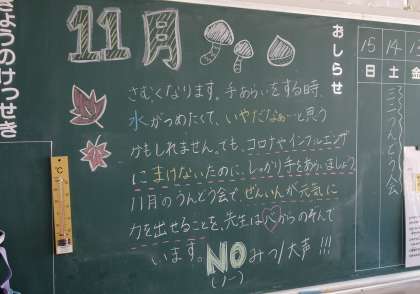 きょうのけっせき
11月
さむくなります。手あらいをする時、
水がつめたくて、いやだなぁーと思う
かもしれません。でも、コロナやインフルエンザ
にまけないために、しっかり手をあらいましょう。
11月のうんどう会で、ぜんいんが元気に
力を出せることを、先生は心からのぞんで
います。 NO みつ/大声!!!
(ノー)
おしらせ
15 14
日 土 金